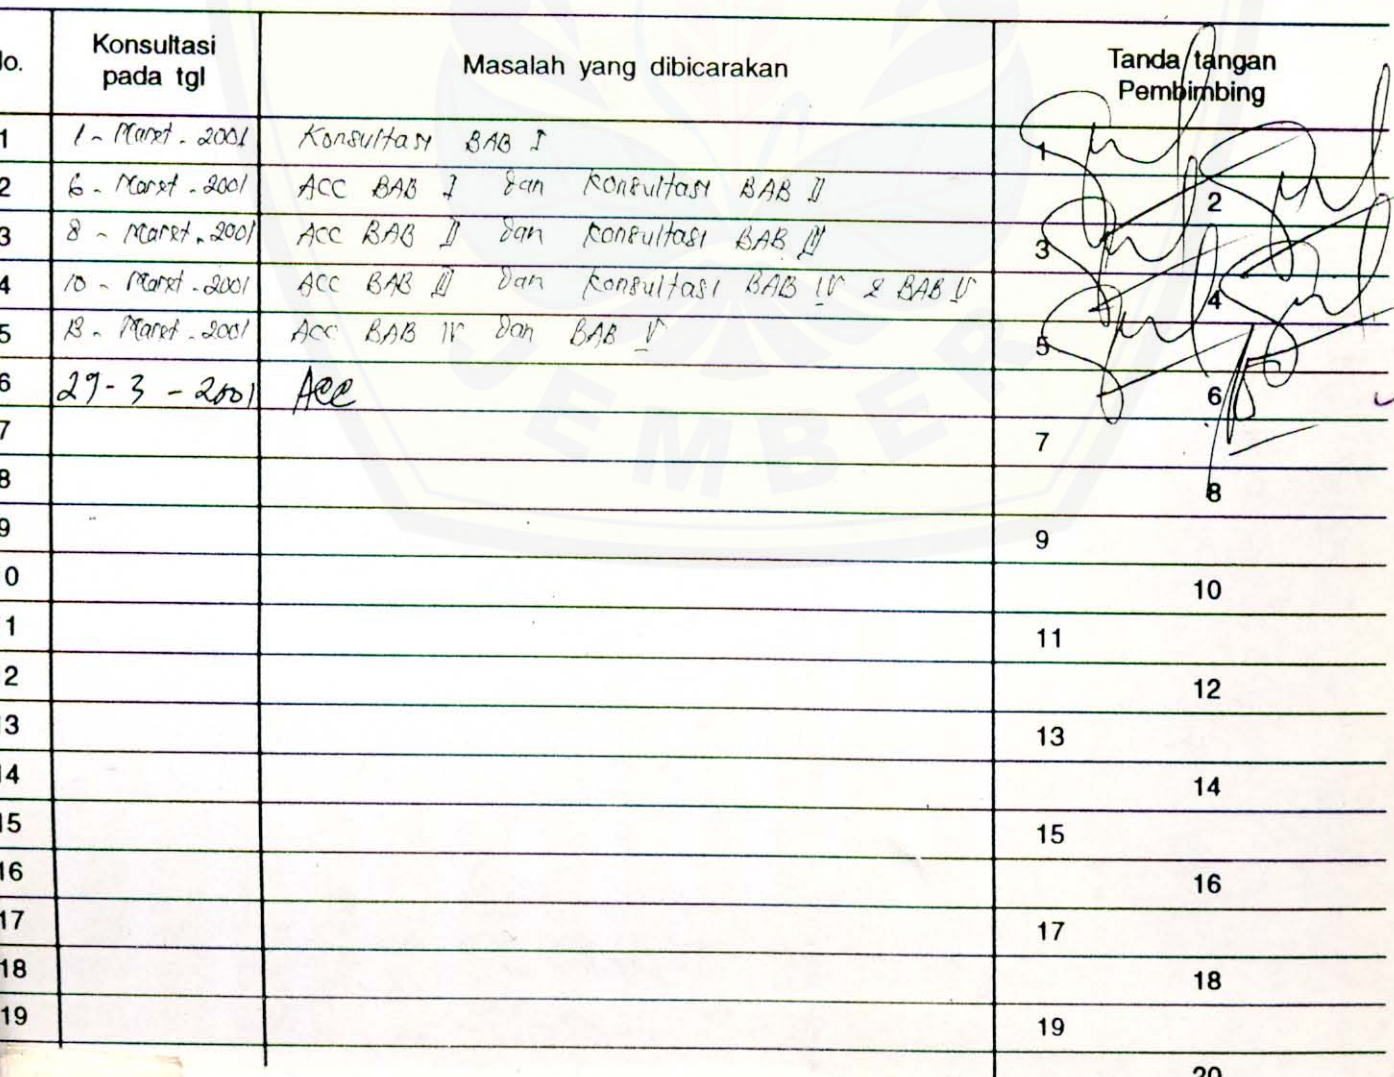 No. Konsultasi pada tgl Masalah yang dibicarakan Tanda tangan Pembimbing
1 1 - Maret - 2001 Konsultasi BAB I 1
2 6 - Maret - 2001 ACC BAB I dan konsultasi BAB II 2
3 8 - Maret - 2001 ACC BAB II dan konsultasi BAB III 3
4 10 - Maret - 2001 ACC BAB III dan konsultasi BAB IV & BAB V 4
5 Maret - 2001 Acc BAB IV dan BAB V 5
6 29 - 3 - 2001 Acc 6
7 7
8 8
9 9
0 10
1 11
2 12
13 13
14 14
15 15
16 16
17 17
18 18
19 19
20
JEMBER